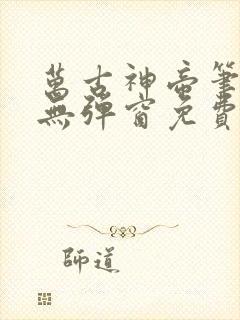 萬古神帝筆
無彈窗免費
師道